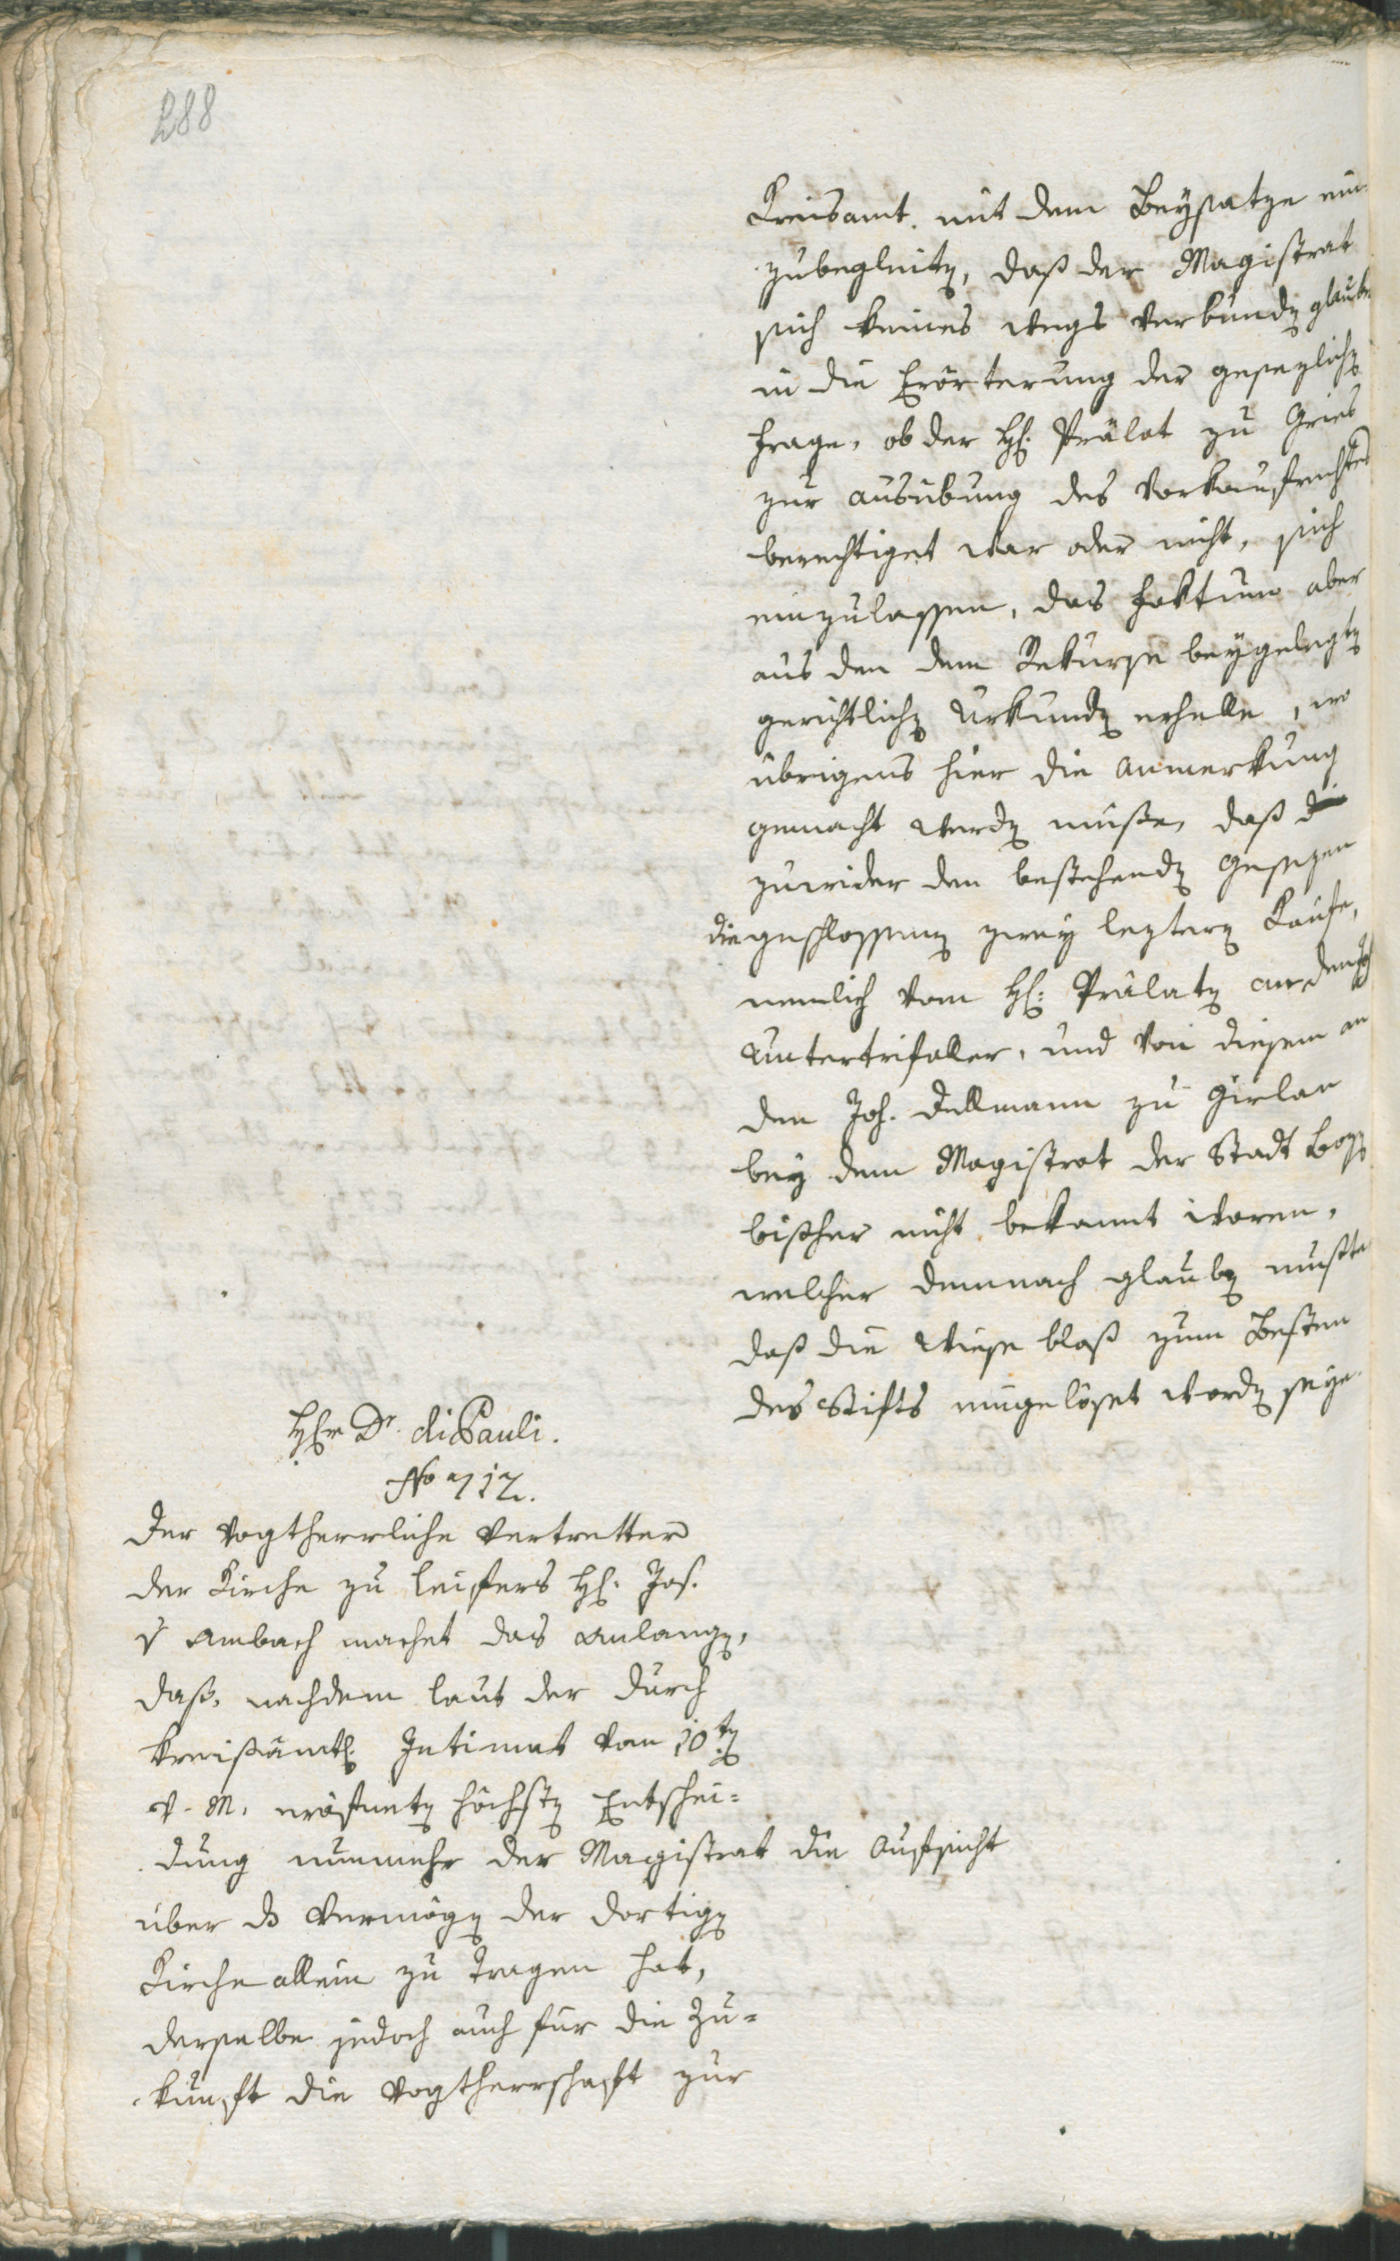 288
Kreisamt. mit dem Beysatze ein-
zubegleiten, daß der Magistrat
sich keines wegs verbunden glaube
in die Erörterung der gesezlichen
Frage, ob der H. Prälat zu Gries
zur Ausübung des Vorkaufrechtes
berechtiget war oder nicht, sich
einzulassen, das Faktum aber
aus den dem Rekurse beygelegten
gerichtlichen Urkunden erhelle, wo
übrigens hier die Anmerkung
gemacht werden müße, daß
zuwider den bestehenden Gesezen
die geschlossenen zwey leztern Kaufe,
nemlich vom H: Prälaten an den
Untertrifaller, und von diesem an
den Joh. Dellmann zu Girlan
bey dem Magistrat der Stadt Bozen
bißher nicht bekannt waren,
welcher demnach glauben mußte
daß die Wiese bloß zum Besten
des Stifts eingelöset worden seye.
Herr Dr. di Pauli.
No 712.
Der Vogtherrliche Vertretter
der Kirche zu Leifers H. Jos.
v Ambach machet das Anlangen,
daß, nachdem laut der durch
kreißämtl. Intimat vom 10ten
v. M. eröfneten höchsten Entschei=
dung nunmehr der Magistrat die Aufsicht
über das Vermögen der dortigen
Kirche allein zu tragen hat,
derselbe jedoch auch für die Zu=
kunft die Vogtherrschaft zur